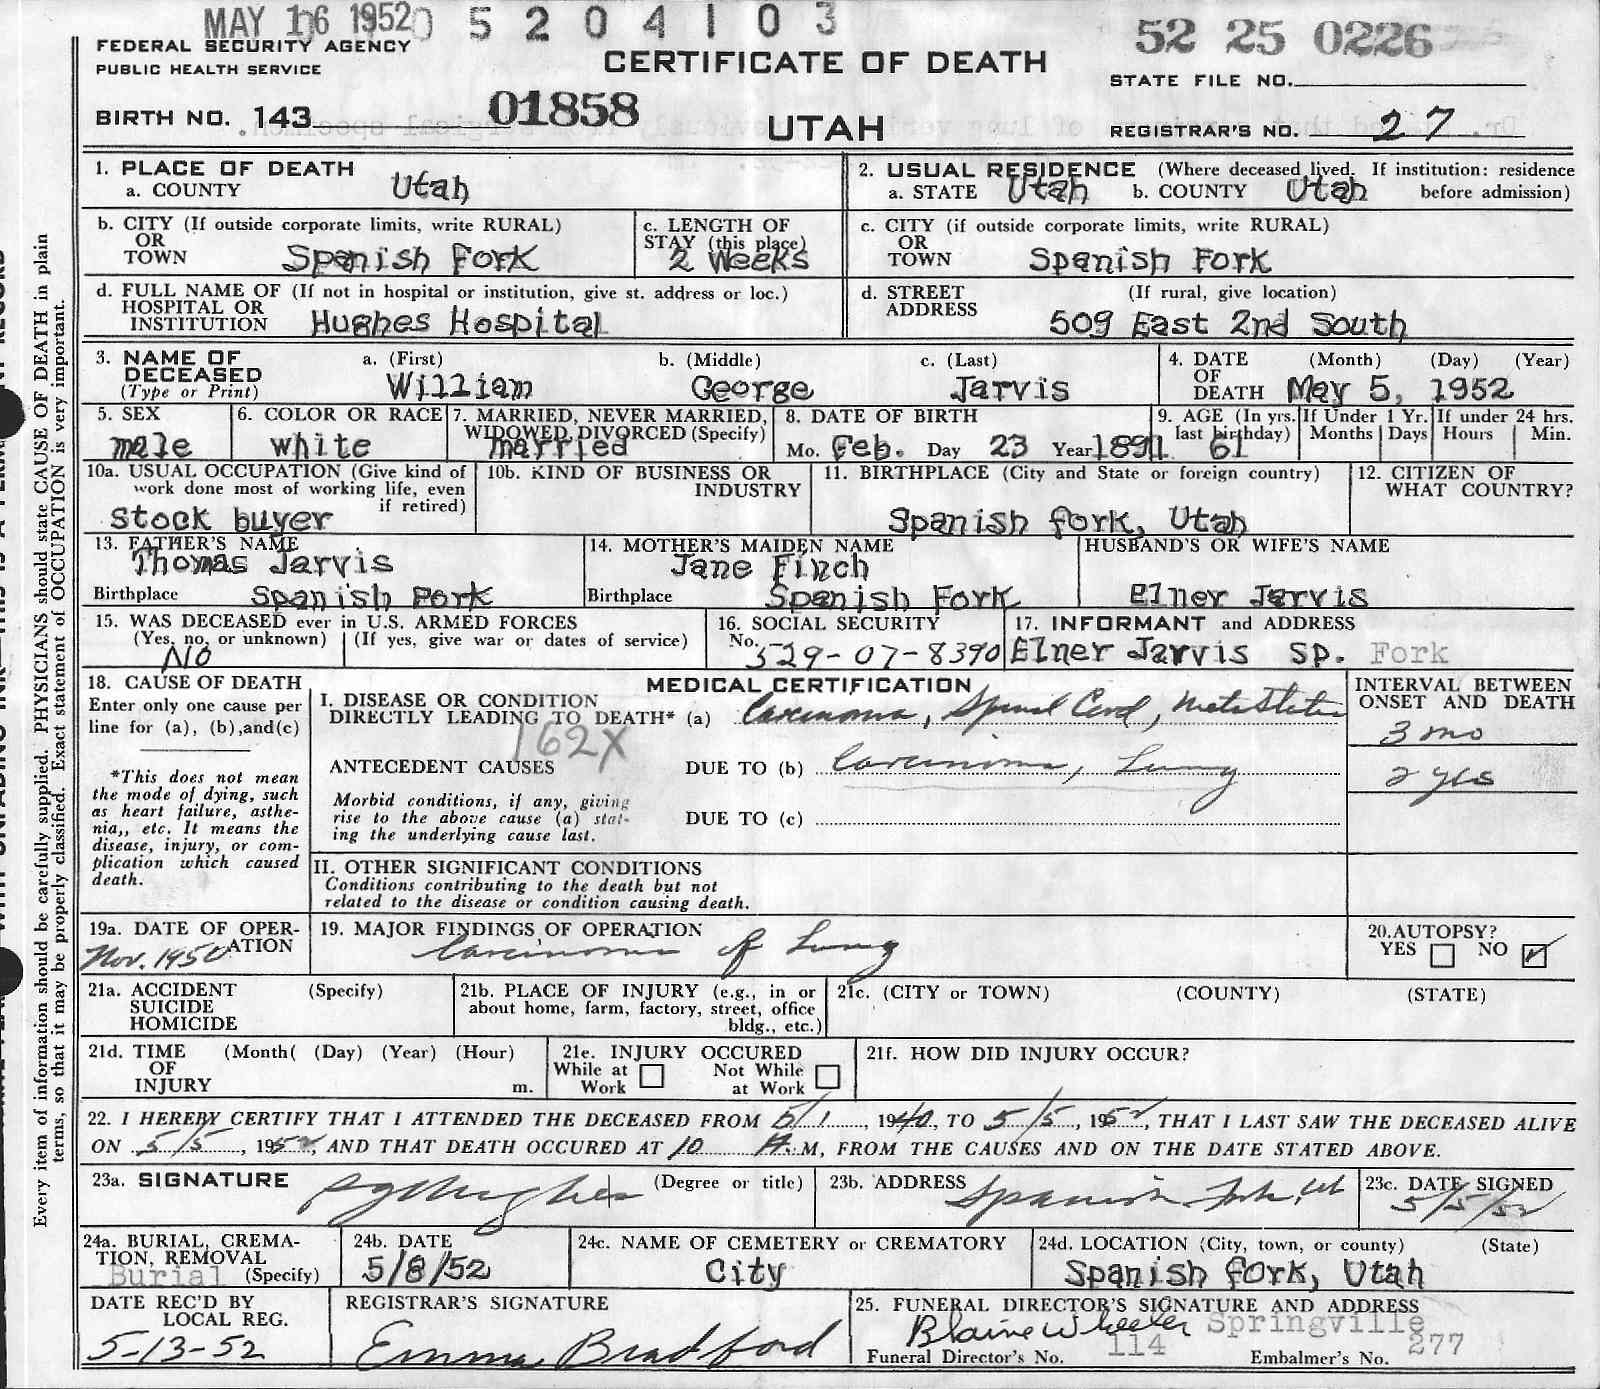 MAY 16 1952 0 5 2 0 4 1 0 3
52 25 0226
FEDERAL SECURITY AGENCY
PUBLIC HEALTH SERVICE
CERTIFICATE OF DEATH
STATE FILE NO.
BIRTH NO. 143
01858
UTAH
REGISTRAR'S NO. 27
Every item of information should be carefully supplied. PHYSICIANS should state CAUSE OF DEATH in plain
terms, so that it may be properly classified. Exact statement of OCCUPATION is very important.
1. PLACE OF DEATH
a. COUNTY Utah
2. USUAL RESIDENCE (Where deceased lived. If institution: residence
a. STATE Utah b. COUNTY Utah before admission)
b. CITY (If outside corporate limits, write RURAL)
OR
TOWN Spanish Fork
c. LENGTH OF
STAY (this place)
2 Weeks
c. CITY (if outside corporate limits, write RURAL)
OR
TOWN Spanish Fork
d. FULL NAME OF (If not in hospital or institution, give st. address or loc.)
HOSPITAL OR
INSTITUTION Hughes Hospital
d. STREET (If rural, give location)
ADDRESS
509 East 2nd South
3. NAME OF a. (First) b. (Middle) c. (Last)
DECEASED
(Type or Print) William George Jarvis
4. DATE (Month) (Day) (Year)
OF
DEATH May 5, 1952
5. SEX
male
6. COLOR OR RACE
white
7. MARRIED, NEVER MARRIED,
WIDOWED DIVORCED (Specify)
married
8. DATE OF BIRTH
Mo. Feb. Day 23 Year 1891
9. AGE (In yrs.
last birthday)
61
If Under 1 Yr.
Months Days
If under 24 hrs.
Hours Min.
10a. USUAL OCCUPATION (Give kind of
work done most of working life, even
if retired)
stock buyer
10b. KIND OF BUSINESS OR
INDUSTRY
11. BIRTHPLACE (City and State or foreign country)
Spanish fork, Utah
12. CITIZEN OF
WHAT COUNTRY?
13. FATHER'S NAME
Thomas Jarvis
Birthplace Spanish Fork
14. MOTHER'S MAIDEN NAME
Jane Finch
Birthplace Spanish Fork
HUSBAND'S OR WIFE'S NAME
Elner Jarvis
15. WAS DECEASED ever in U.S. ARMED FORCES
(Yes, no, or unknown) (If yes, give war or dates of service)
No
16. SOCIAL SECURITY
No. 529-07-8390
17. INFORMANT and ADDRESS
Elner Jarvis Sp. Fork
18. CAUSE OF DEATH
Enter only one cause per
line for (a), (b),and(c)
*This does not mean
the mode of dying, such
as heart failure, asthe-
nia,, etc. It means the
disease, injury, or com-
plication which caused
death.
MEDICAL CERTIFICATION
I. DISEASE OR CONDITION
DIRECTLY LEADING TO DEATH* (a) Carcinoma, Spinal Cord, Metastatic
162X
ANTECEDENT CAUSES DUE TO (b) Carcinoma, Lung
Morbid conditions, if any, giving
rise to the above cause (a) stat-
ing the underlying cause last.
DUE TO (c)
INTERVAL BETWEEN
ONSET AND DEATH
3 mo
2 yrs
II. OTHER SIGNIFICANT CONDITIONS
Conditions contributing to the death but not
related to the disease or condition causing death.
19a. DATE OF OPER-
ATION
Nov. 1950
19. MAJOR FINDINGS OF OPERATION
Carcinoma of Lung
20.AUTOPSY?
YES NO
21a. ACCIDENT (Specify)
SUICIDE
HOMICIDE
21b. PLACE OF INJURY (e.g., in or
about home, farm, factory, street, office
bldg., etc.)
21c. (CITY or TOWN) (COUNTY) (STATE)
21d. TIME (Month( (Day) (Year) (Hour)
OF
INJURY m.
21e. INJURY OCCURED
While at Not While
Work at Work
21f. HOW DID INJURY OCCUR?
22. I HEREBY CERTIFY THAT I ATTENDED THE DECEASED FROM 5/1, 1940, TO 5/5, 1952, THAT I LAST SAW THE DECEASED ALIVE
ON 5/5, 1952, AND THAT DEATH OCCURED AT 10 A.M, FROM THE CAUSES AND ON THE DATE STATED ABOVE.
23a. SIGNATURE Hughes (Degree or title)
23b. ADDRESS Spanish Fork, Ut
23c. DATE SIGNED
5/5/52
24a. BURIAL, CREMA-
TION, REMOVAL
Burial (Specify)
24b. DATE
5/8/52
24c. NAME OF CEMETERY or CREMATORY
City
24d. LOCATION (City, town, or county) (State)
Spanish fork, Utah
DATE REC'D BY
LOCAL REG.
5-13-52
REGISTRAR'S SIGNATURE
Emma Bradford
25. FUNERAL DIRECTOR'S SIGNATURE AND ADDRESS
Blaine Wheeler Springville
Funeral Director's No. 114 Embalmer's No. 277